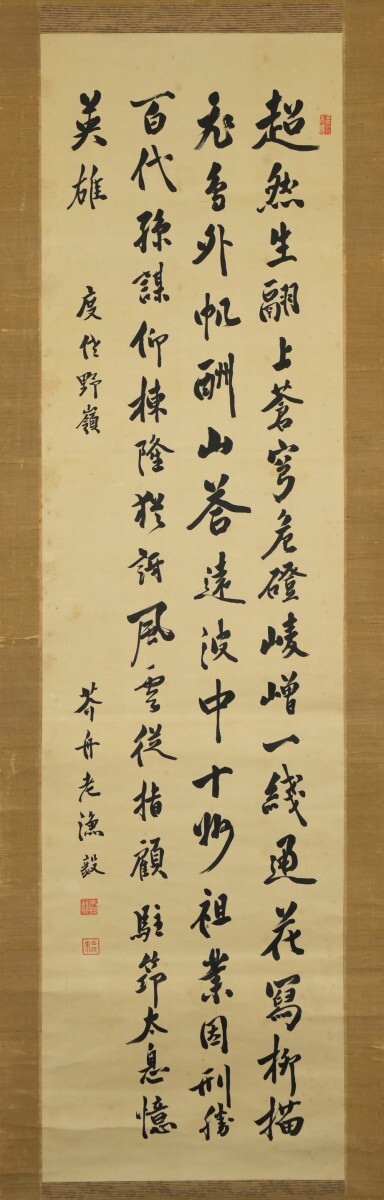 超然生翮上蒼穹危磴崚嶒一綫通花寫柳描
飛鳥外帆酬山答遠波中十州祖業因形勝
百代孫謀仰棟隆猶訝風雲從指顧駐笻太息憶
英雄
度佐野嶺
芥舟老漁毅